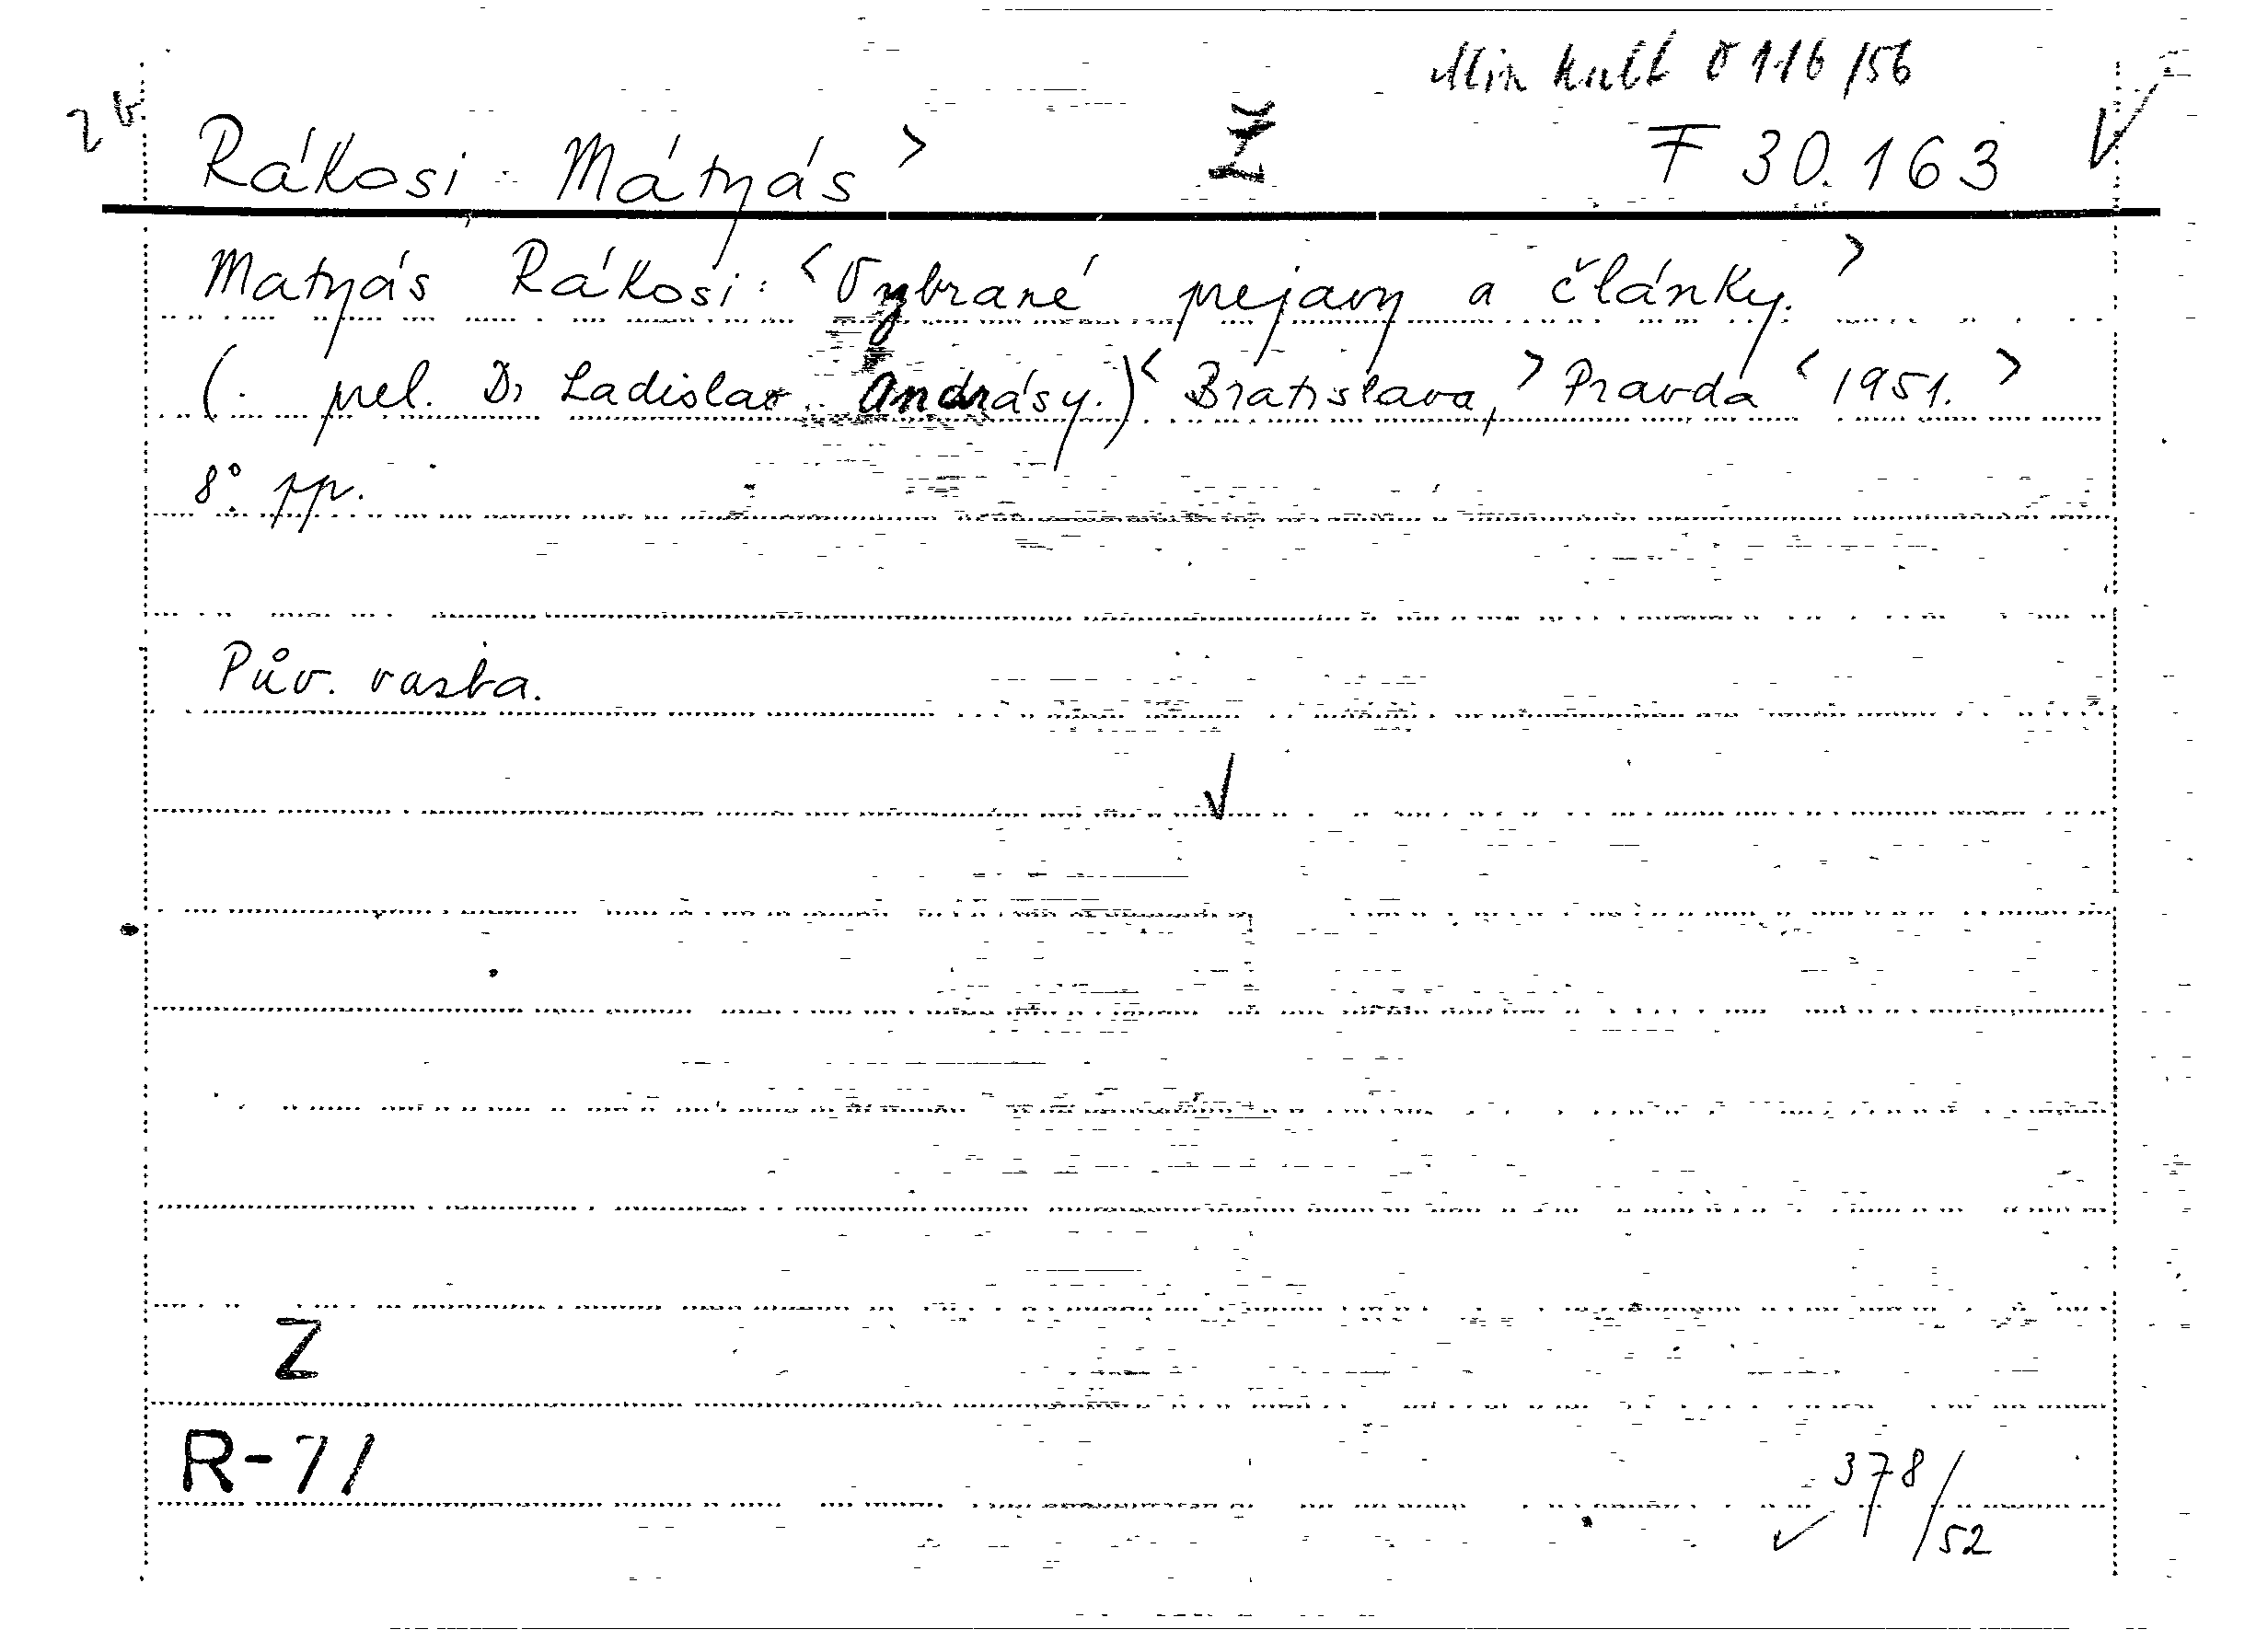 Min kult č 116/56
2 b.
Rákosi Mátyás > Ž F 30.163 ✓
Matyás Rákosi: <Vybrané prejavy a články.>
(. prel. Dr Ladislav Andrásy.) <Bratislava,> Pravda <1951.>
8° pp.
Pův. vazba.
✓
Z
R-71
✓ 378/52